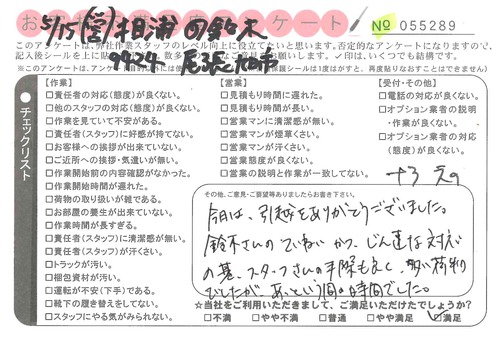 5/15(営)相浦 ㊚鈴木
お客様アンケート
№ 055289
9924 尾張旭市
このアンケートは、弊社作業スタッフのレベル向上に役立てたいと思います。否定的なアンケートになりますので、
記入後シールを上に貼り
※このアンケートは、
保護シールは1度はがすと、再度貼りなおすことはできません)
チェックリスト
【作業】
□責任者の対応(態度)が良くない。
□他のスタッフの対応(態度)が良くない。
□作業を見ていて不安がある。
□責任者(スタッフ)に好感が持てない。
□お客様への挨拶が出来ていない。
□ご近所への挨拶・気遣いが無い。
□作業開始前の内容確認がなかった。
□作業開始時間が遅れた。
□荷物の取り扱いが雑である。
□お部屋の養生が出来ていない。
□作業時間が長すぎる。
□責任者(スタッフ)に清潔感が無い。
□責任者(スタッフ)が汗くさい。
□トラックが汚い。
□梱包資材が汚い。
□運転が不安(下手)である。
□靴下の履き替えをしてない。
□スタッフにやる気がみられない。
【営業】
□見積もり時間に遅れた。
□見積もり時間が長い。
□営業マンに清潔感が無い。
□営業マンが煙草くさい。
□営業マンが汗くさい。
□営業態度が良くない。
□営業の説明と作業が一致してない。
【受付・その他】
□電話の対応が良くない。
□オプション業者の説明
・作業が良くない。
□オプション業者の対応
(態度)が良くない。
その他、ご意見・ご要望等ありましたらお書き下さい。
今日は、引越をありがとうございました。
鈴木さんのていねい かつ、じん速な対応
の基、スタッフさんの手際も良く、多い荷物
でしたが あっという間の時間でした。
☆当社をご利用いただきまして、ご満足いただけたでしょうか?
□不満 □やや不満 □普通 □やや満足 ☑満足